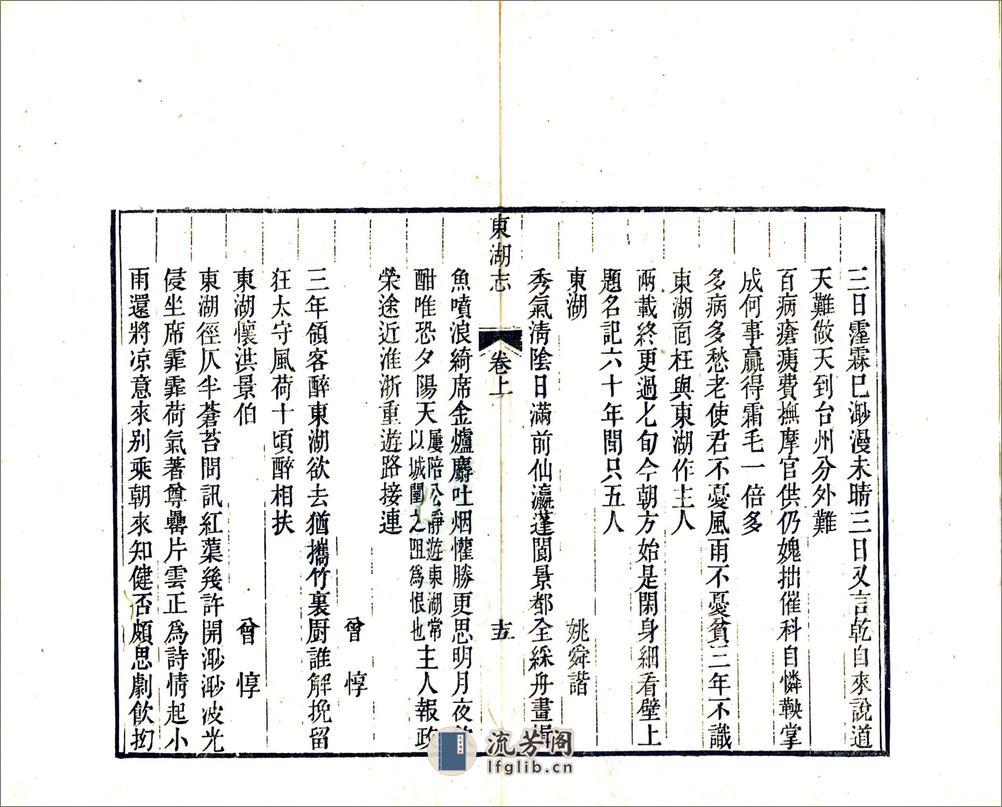 三日霪霖已渺漫未晴三日又言乾自來說道
天難做天到台州分外難
百病瘡痍費撫摩官供仍媿拙催科自憐鞅掌
成何事贏得霜毛一倍多
多病多愁老使君不憂風雨不憂貧三年不識
東湖面枉與東湖作主人
兩載終更過七旬今朝方始是閑身細看壁上
題名記六十年間只五人
東湖 姚舜諧
秀氣清陰日滿前仙瀛蓬閬景都全綵舟畫楫
東湖志 卷上 十五
魚噴浪綺席金爐麝吐烟懽勝更思明月夜
酣唯恐夕陽天屢陪公靜遊東湖常以城闉之阻為恨也主人報政
榮途近淮浙重遊路接連
曾惇
三年領客醉東湖欲去猶攜竹裏厨誰解挽留
狂太守風荷十頃醉相扶
東湖懷洪景伯 曾惇
東湖徑仄半蒼苔問訊紅蕖幾許開渺渺波光
侵坐席霏霏荷氣著尊罍片雲正為詩情起小
雨還將凉意來别乘朝來知健否頗思劇飲扨
流芳阁
lfglib.cn